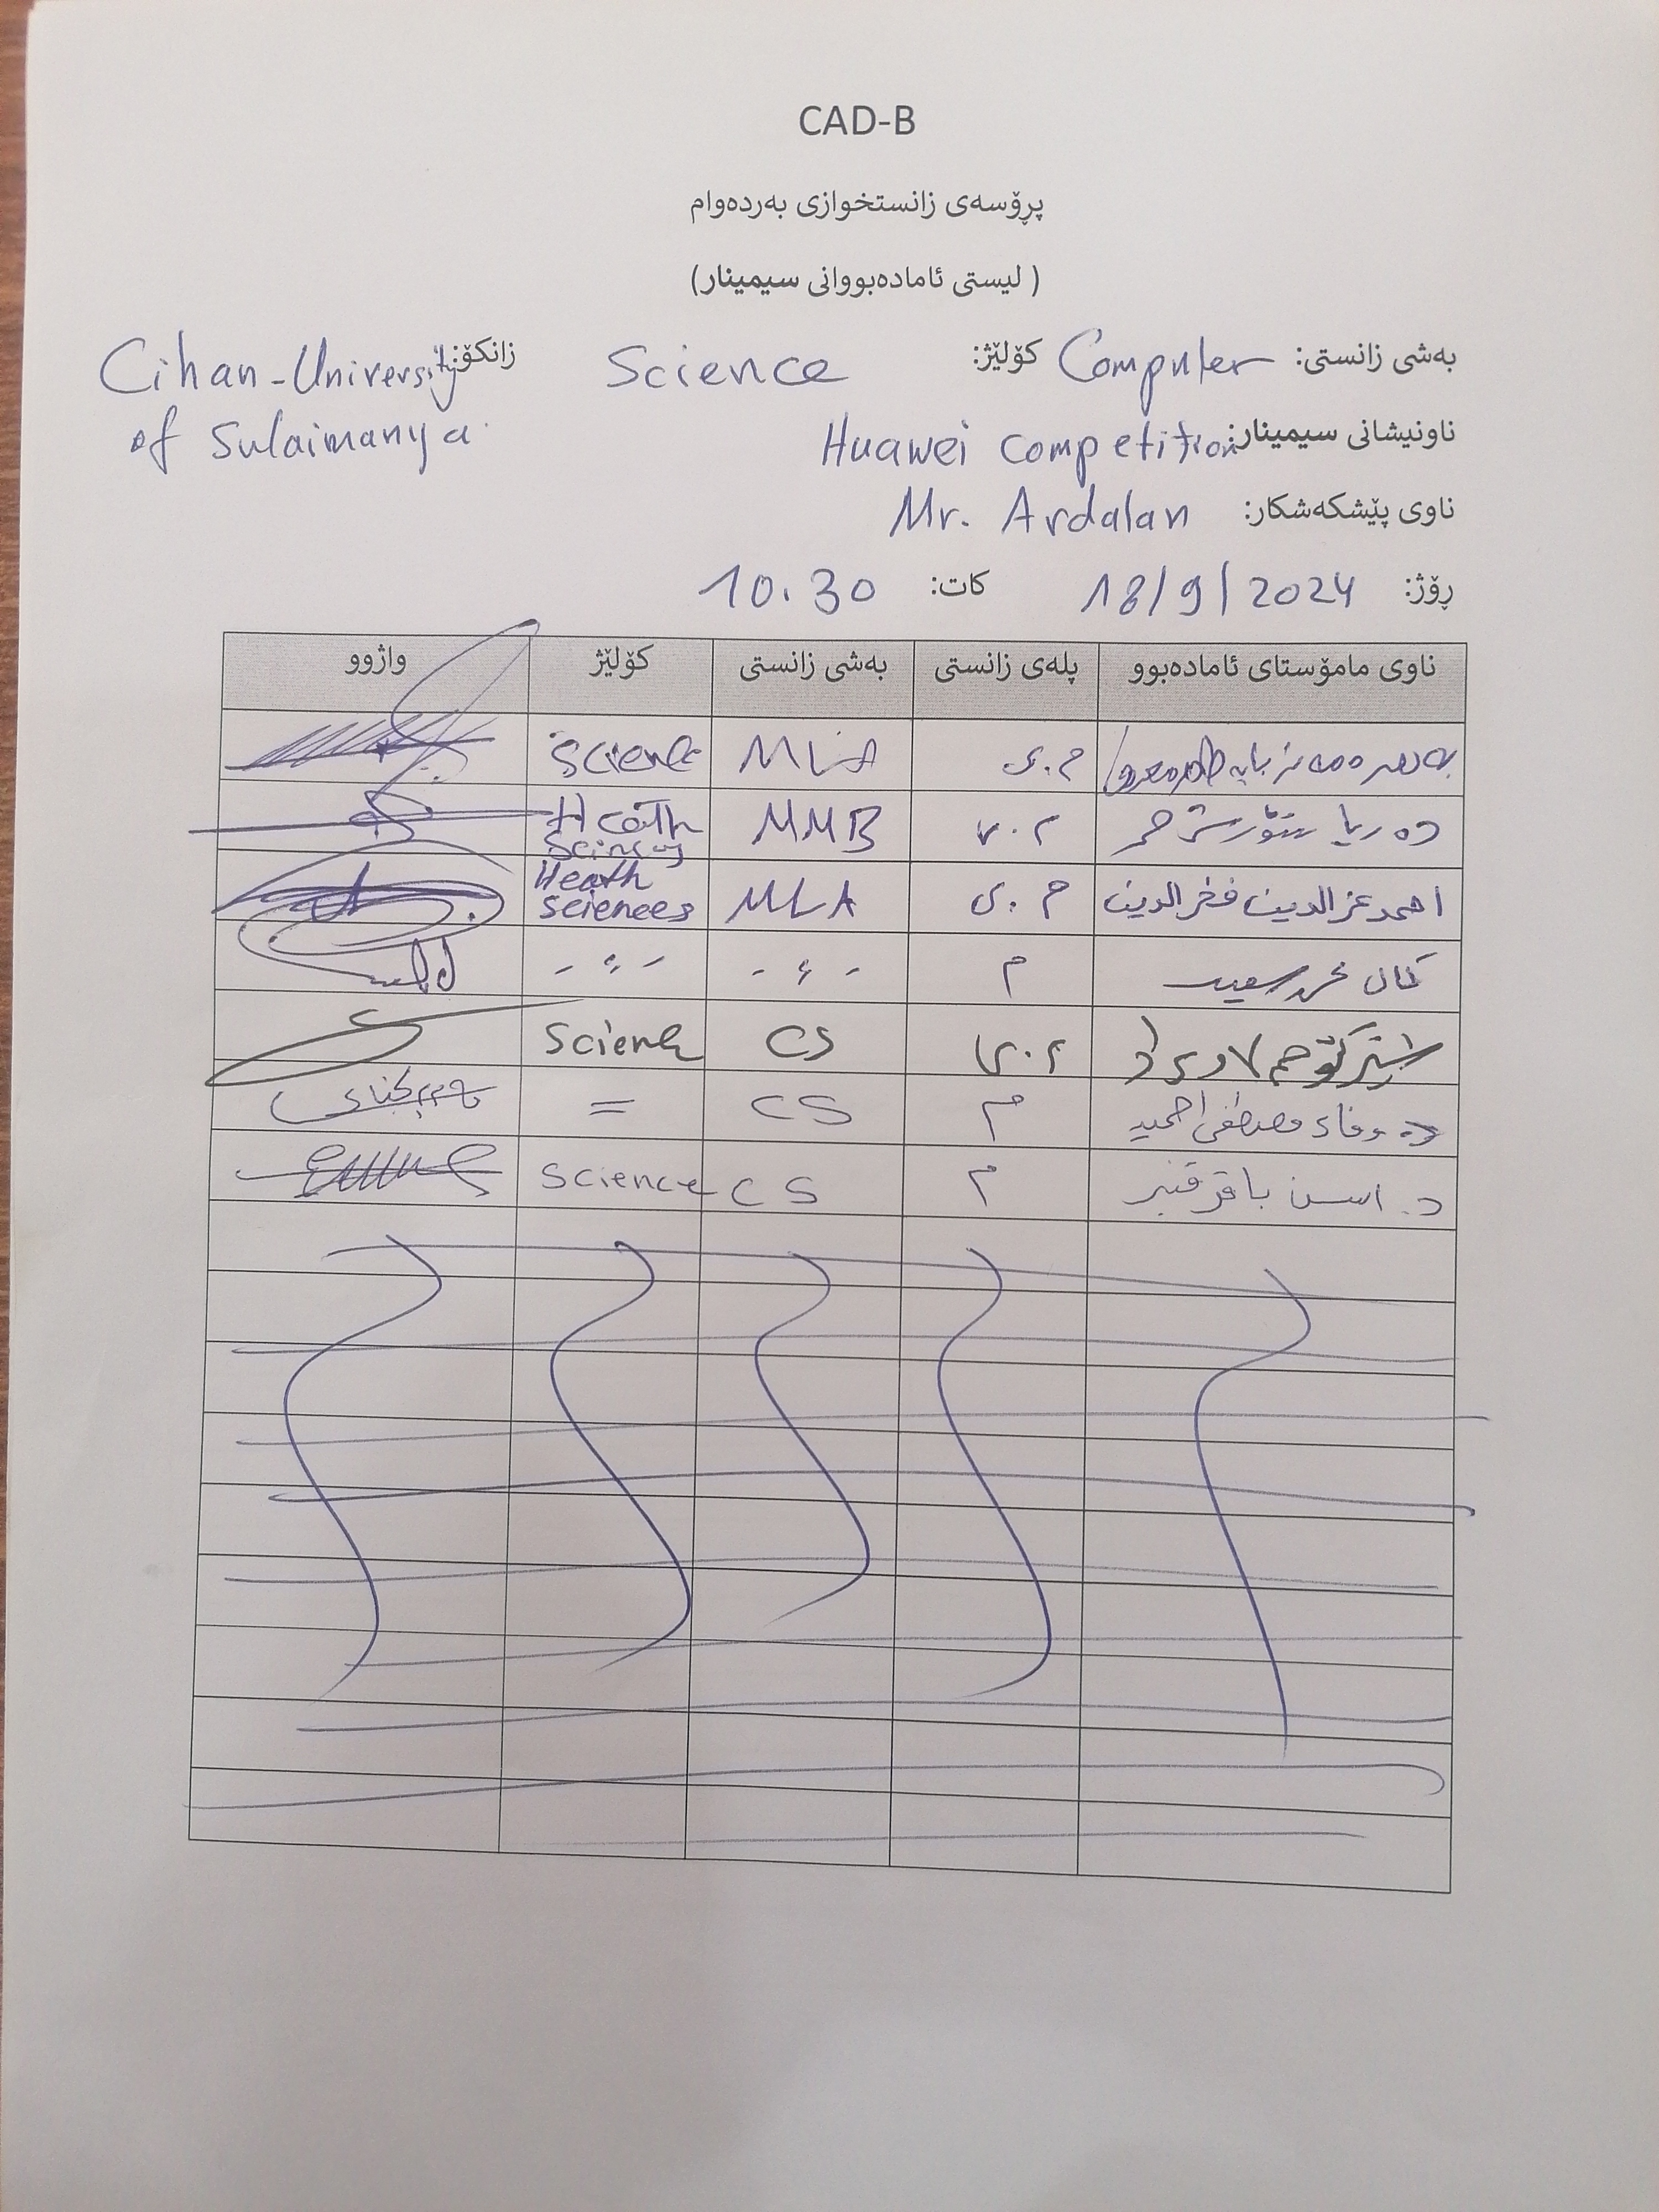 CAD-B
پڕۆسەی زانستخوازی بەردەوام
( لیستی ئامادەبووانی سیمینار)
بەشی زانستی: Computer کۆلێژ: Science زانکۆ: Cihan-University of Sulaimanya
ناونیشانی سیمینار: Huawei Competition
ناوی پێشکەشکار: Mr. Ardalan
ڕۆژ: 18/9/2024 کات: 10.30
ناوی مامۆستای ئامادەبوو پلەی زانستی بەشی زانستی کۆلێژ واژوو
م.ی MLA Science
دەریا MMB Health Sciences
احمد عزالدین فخرالدین م.ی MLA Heath sciences
کمال محمد سعید م
م.ی CS Science
د. وفاء مصطفی احمید م CS =
د. اسن باقر قنبر م CS Science